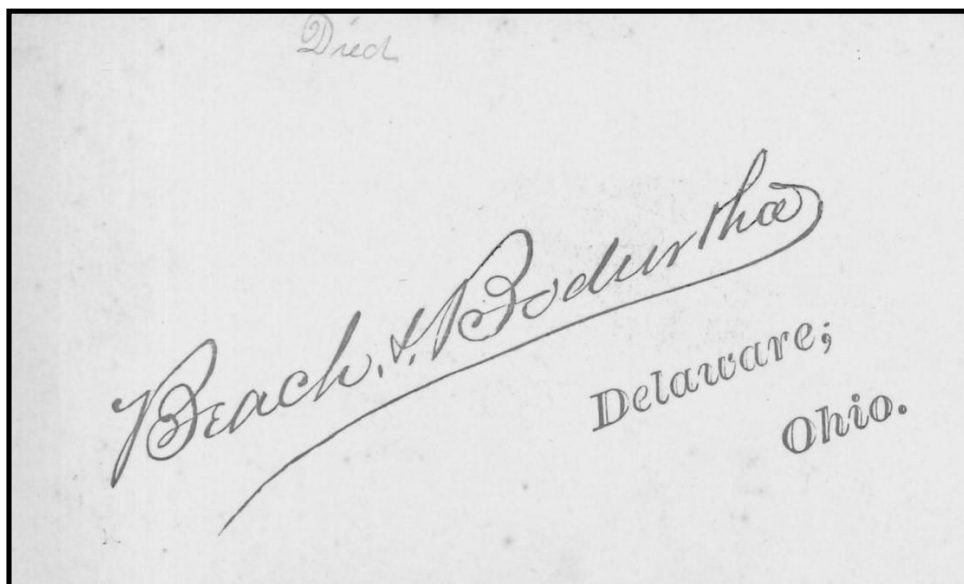 Died
Beach & Bodurtha
Delaware;
Ohio.